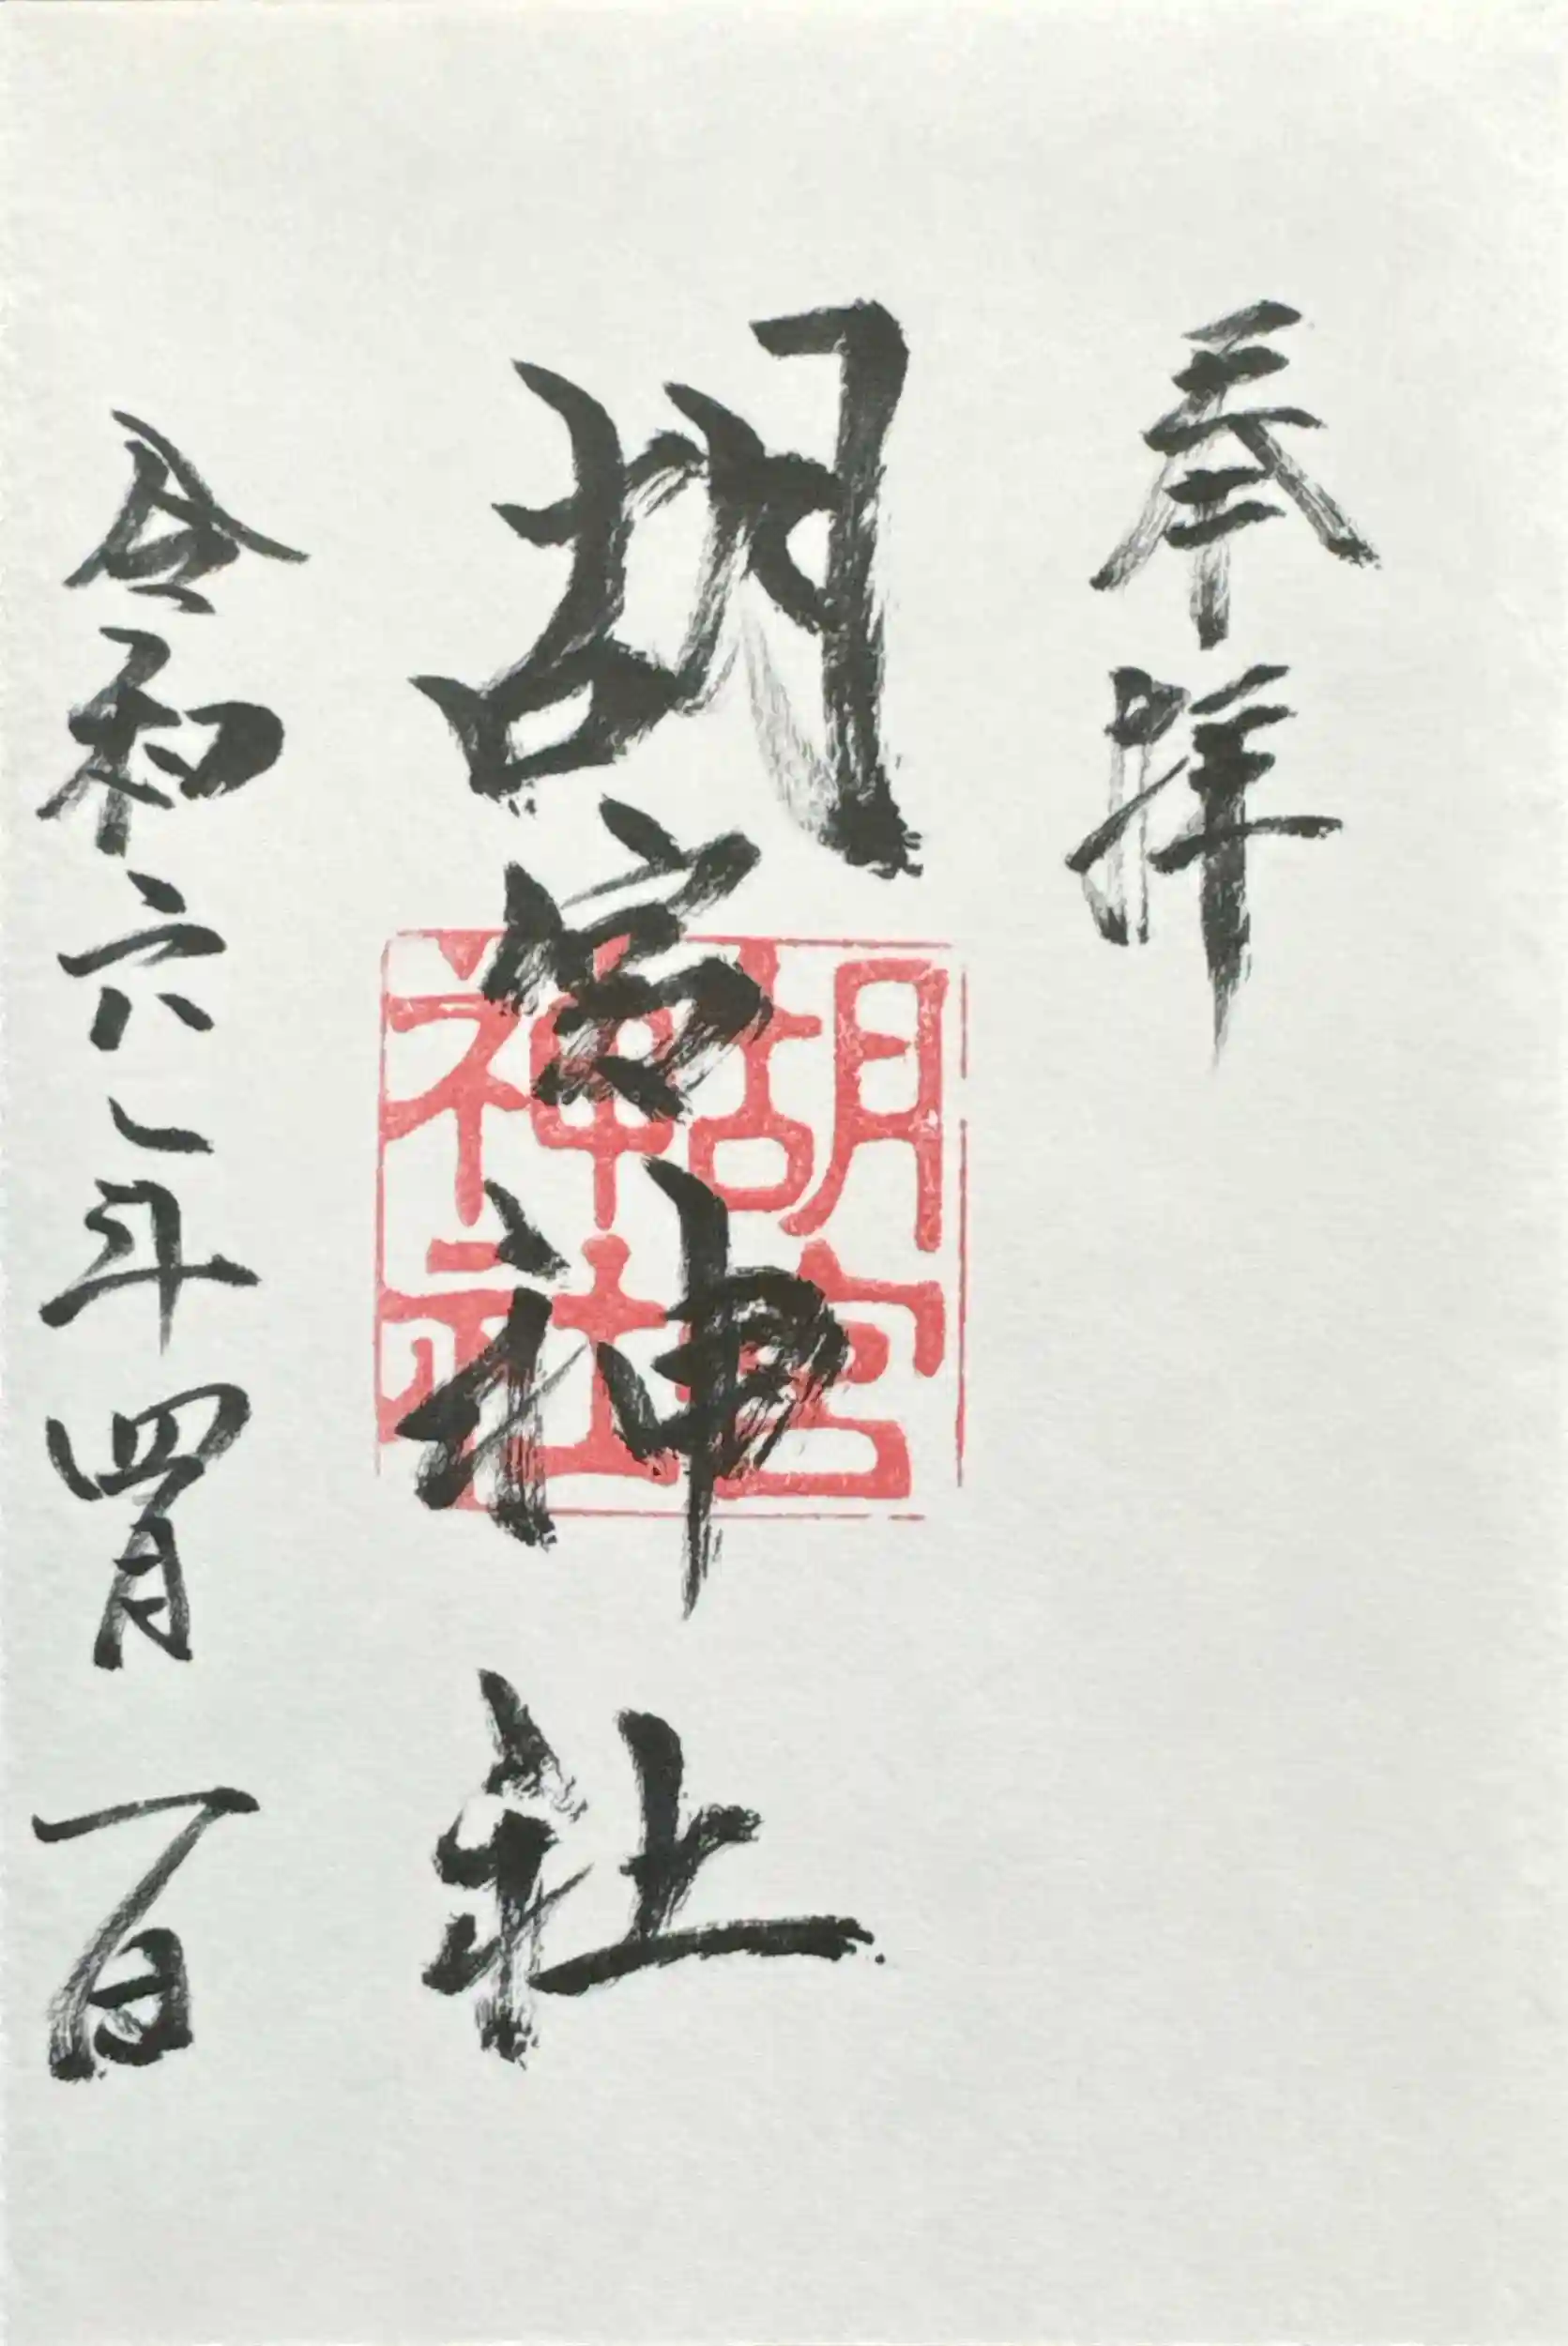 奉拝
胡宮神社
胡宮神社
令和六年四月一日